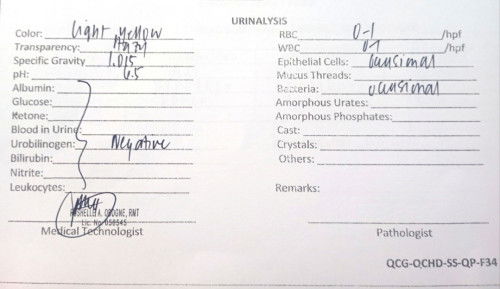 URINALYSIS
Color: Light Yellow
Transparency: Hazy
Specific Gravity 1.015
pH: 6.5
Albumin:
Glucose:
Ketone:
Blood in Urine:
Urobilinogen: Negative
Bilirubin:
Nitrite:
Leukocytes:
RBC 0-1 /hpf
WBC 0-1 /hpf
Epithelial Cells: Occasional
Mucus Threads:
Bacteria: occasional
Amorphous Urates:
Amorphous Phosphates:
Cast:
Crystals:
Others:
Remarks:
RMT
Lic. No.
Medical Technologist
Pathologist
QCG-QCHD-SS-QP-F34